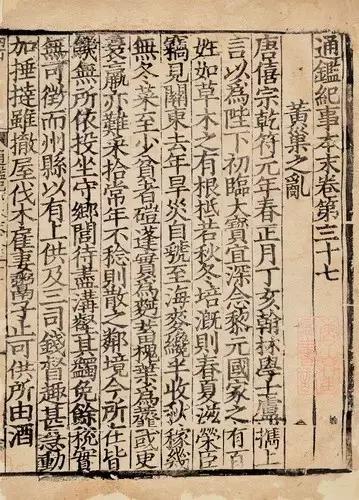 通鑑紀事本末卷第三十七
黃巢之亂
唐僖宗乾符元年春正月丁亥翰林學士盧攜上
言以為陛下初臨大寶宜深念黎元國家之有百
姓如草木之有根柢若秋冬培溉則春夏滋榮臣
竊見關東去年旱災自虢至海麥纔半收秋稼幾
無冬菜至少貧者磑蓬實爲麪蓄槐葉爲虀或更
衰羸亦難采拾常年不稔則散之鄰境今所在皆
饑無所依投坐守鄉閭待盡溝壑其蠲免餘稅實
無可徵而州縣以有上供及三司錢督趣甚急動
加捶撻雖撤屋伐木雇妻鬻子止可供所由酒